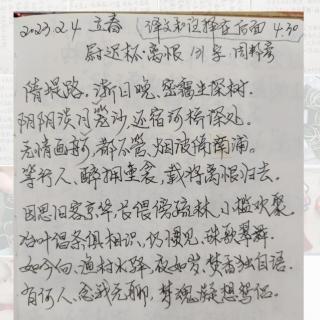 2023.2.4 立春 (译文和注释在后面 4:30
尉迟杯·离恨 131字 周邦彦
隋堤路。渐日晚、密霭生深树。
阴阴淡月笼沙,还宿河桥深处。
无情画舸,都不管、烟波隔南浦。
等行人、醉拥重衾,载将离恨归去。
因思旧客京华,长偎傍疏林,小槛欢聚。
冶叶倡条俱相识,仍惯见、珠歌翠舞。
如今向、渔村水驿,夜如岁、焚香独自语。
有何人、念我无聊,梦魂凝想鸳侣。